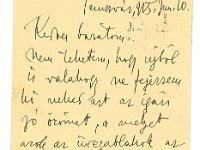 Temesvár, 915. jun. 10.
Kedves barátom!
Nem lehetem, hogy ujból
is valahogy ne fejezzem
ki neked azt az igazi
jó örömet, a melyet
azok az üvegablakok az